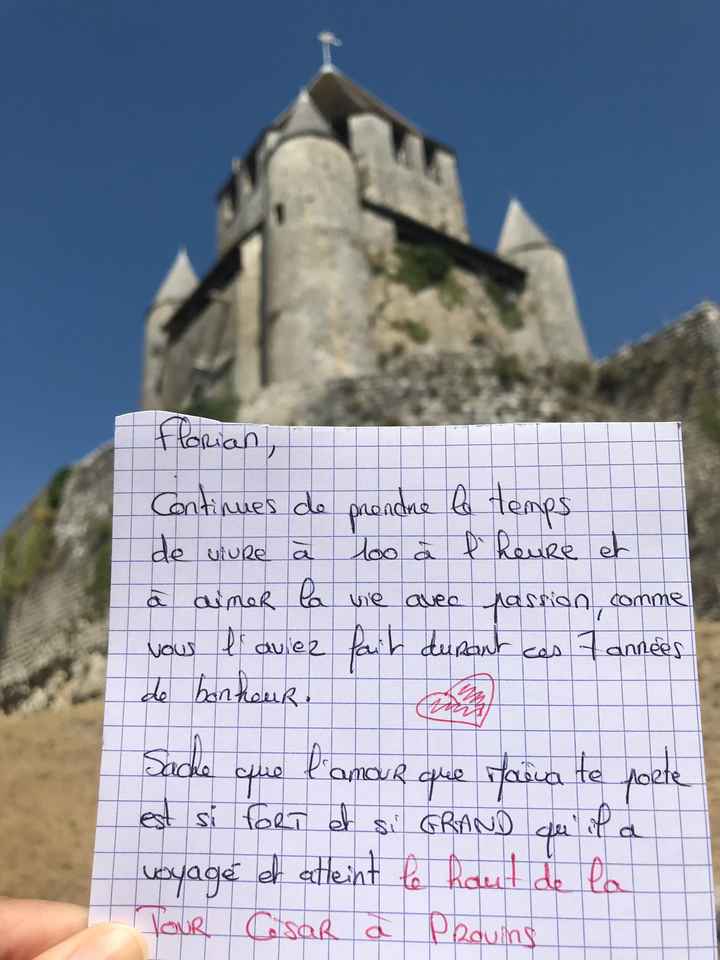 Florian,
Continues de prendre le temps
de vivre à 100 à l'heure et
à aimer la vie avec passion, comme
vous l'aviez fait durant ces 7 années
de bonheur.
Sache que l'amour que Maëva te porte
est si FORT et si GRAND qu'il a
voyagé et atteint le haut de la
TOUR César à Provins